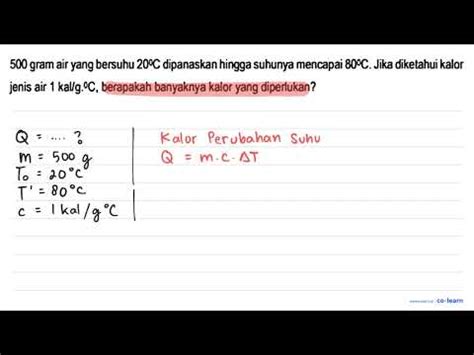 500 gram air yang bersuhu 20⁰C dipanaskan hingga suhunya mencapai 80⁰C. Jika diketahui kalor
jenis air 1 kal/g.⁰C, berapakah banyaknya kalor yang diperlukan?
Q = .... ?
m = 500 g
T₀ = 20°C
T' = 80°C
c = 1 kal/g°C
Kalor Perubahan Suhu
Q = m.c.ΔT
co-learn